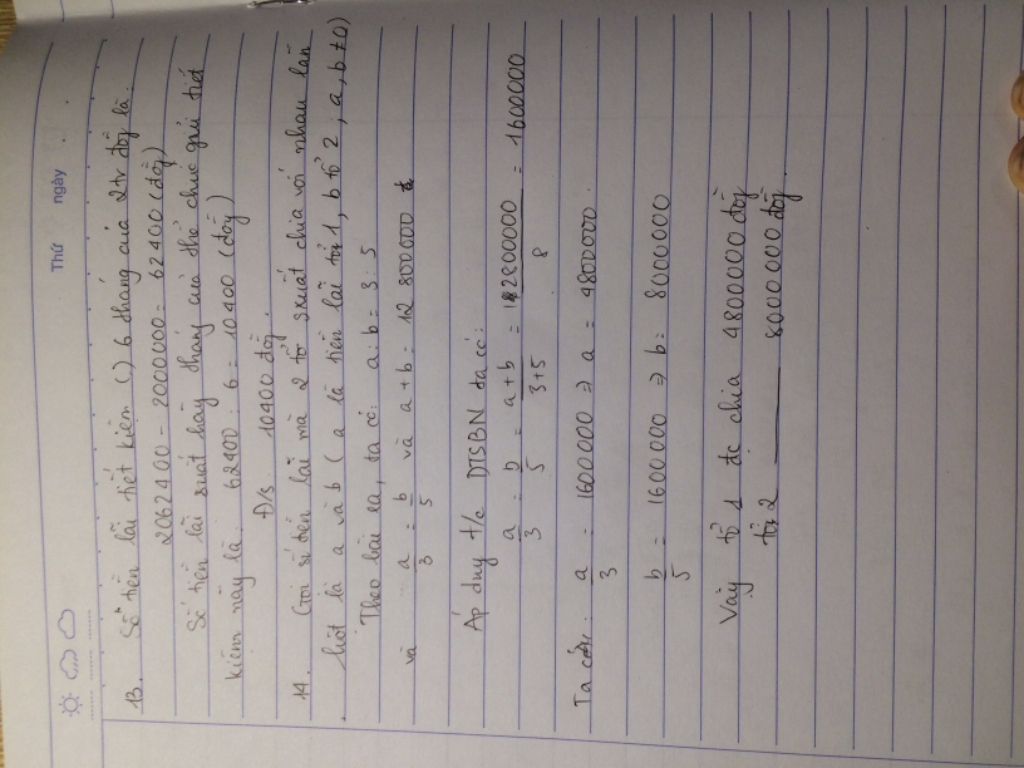 Thứ ngày
13. Số tiền lãi tiết kiệm () 6 tháng của 2tr đồng là:
2062400 - 2000000 = 62400 (đồg)
Số tiền lãi suất hàg tháng của thể chức gửi tiết
kiệm này là: 62400 : 6 = 10400 (đồg)
Đ/s 10400 đồg.
14. Gọi số tiền lãi mà 2 tổ suất chia với nhau lần
lượt là a và b ( a là tiền lãi tổ 1, b tổ 2 ; a, b ≠ 0)
Theo bài ra, ta có: a : b = 3 : 5
và a/3 = b/5 và a + b = 12 800 000
Áp dug t/c DTSBN ta có:
a/3 = b/5 = a + b/3+5 = 12800000/8 = 1600000
Ta có: a/3 = 1600000 => a = 4800000
b/5 = 1600000 => b = 8000000
Vậy tổ 1 đc chia 4800000 đồg
tổ 2 ——— 8000 000 đồg